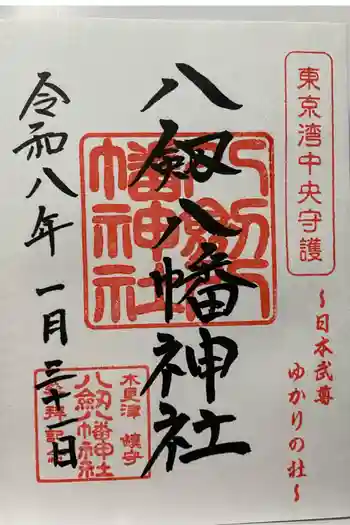 東京湾中央守護
〜日本武尊
ゆかりの社〜
八剱八幡神社
八剱八幡神社
木更津 鎮守
八剱八幡神社
参拝記念
令和八年 一月 三十一日